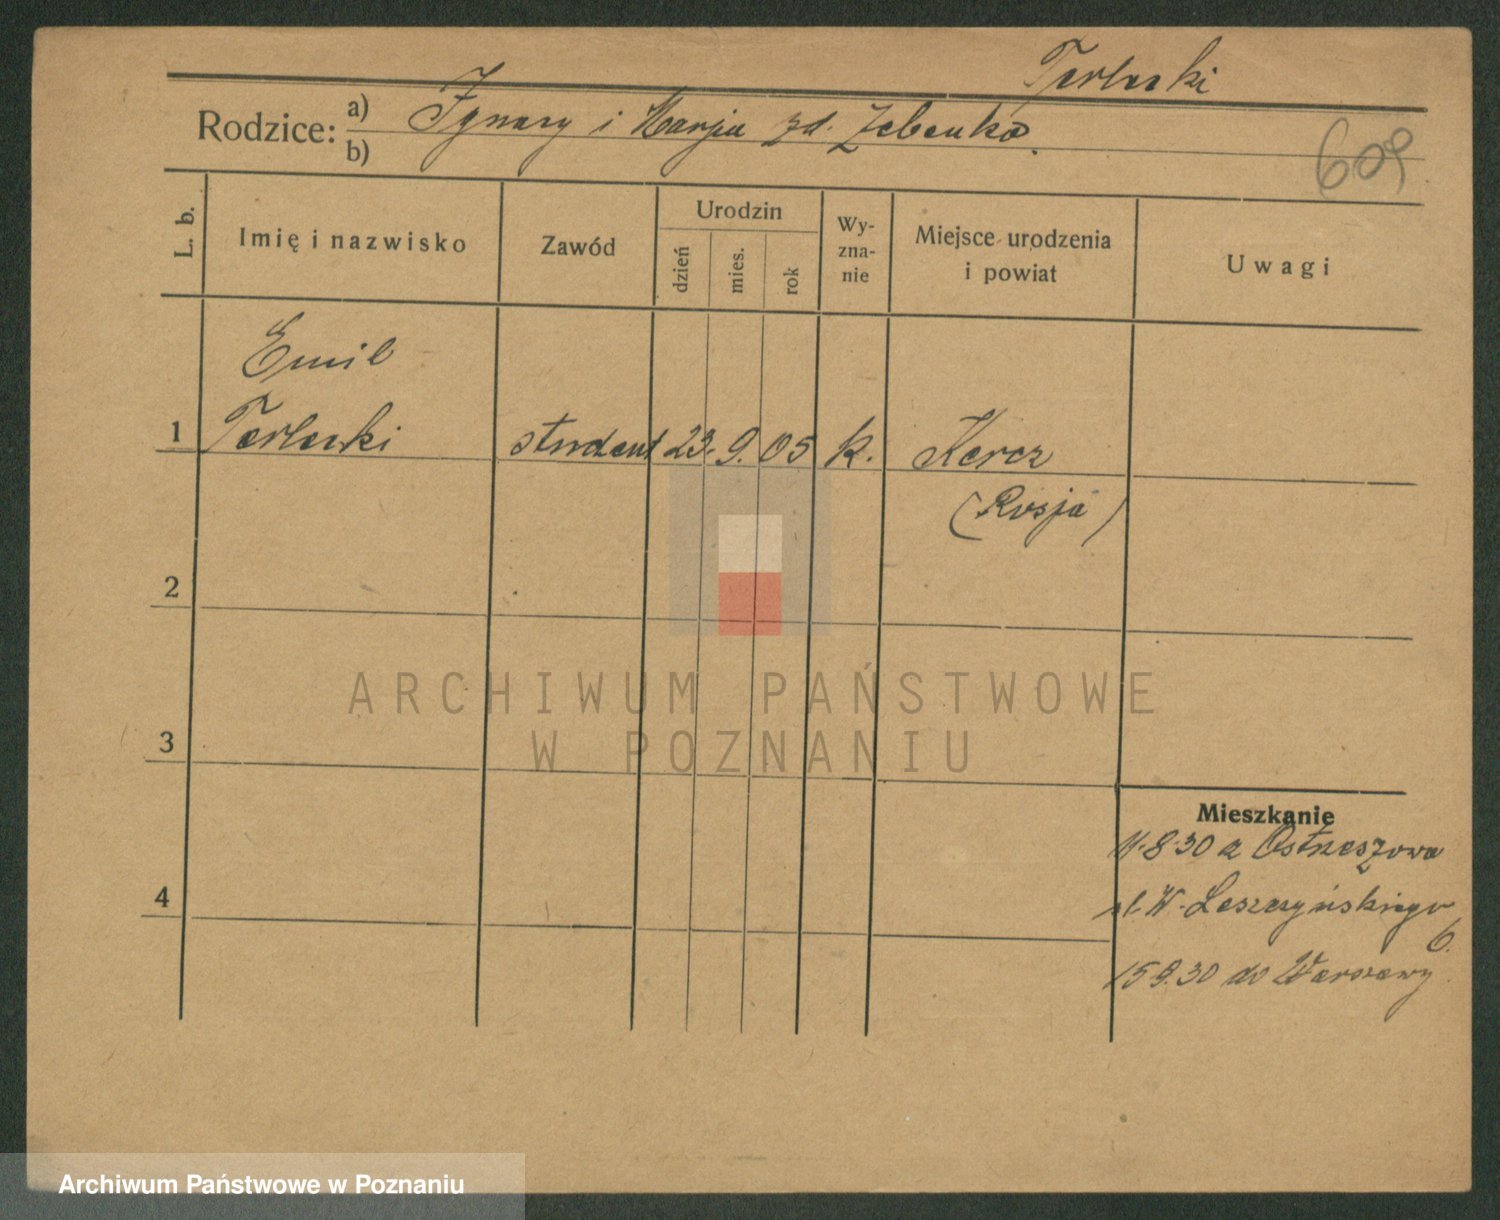 Terlecki
Rodzice: a) Ignacy i Marja zd. Zebenko.
b)
609
L. b.
Imię i nazwisko
Zawód
Urodzin
dzień
mies.
rok
Wy-
zna-
nie
Miejsce urodzenia
i powiat
Uwagi
Emil
1 Terlecki student 23. 9. 05 k. Kercz
(Rosja)
2
ARCHIWUM PAŃSTWOWE
W POZNANIU
3
Mieszkanie
11.8.30 z Ostrzeszowa
4
ul. W. Leszczyńskiego
6.
15 9.30 do Warszawy
Archiwum Państwowe w Poznaniu